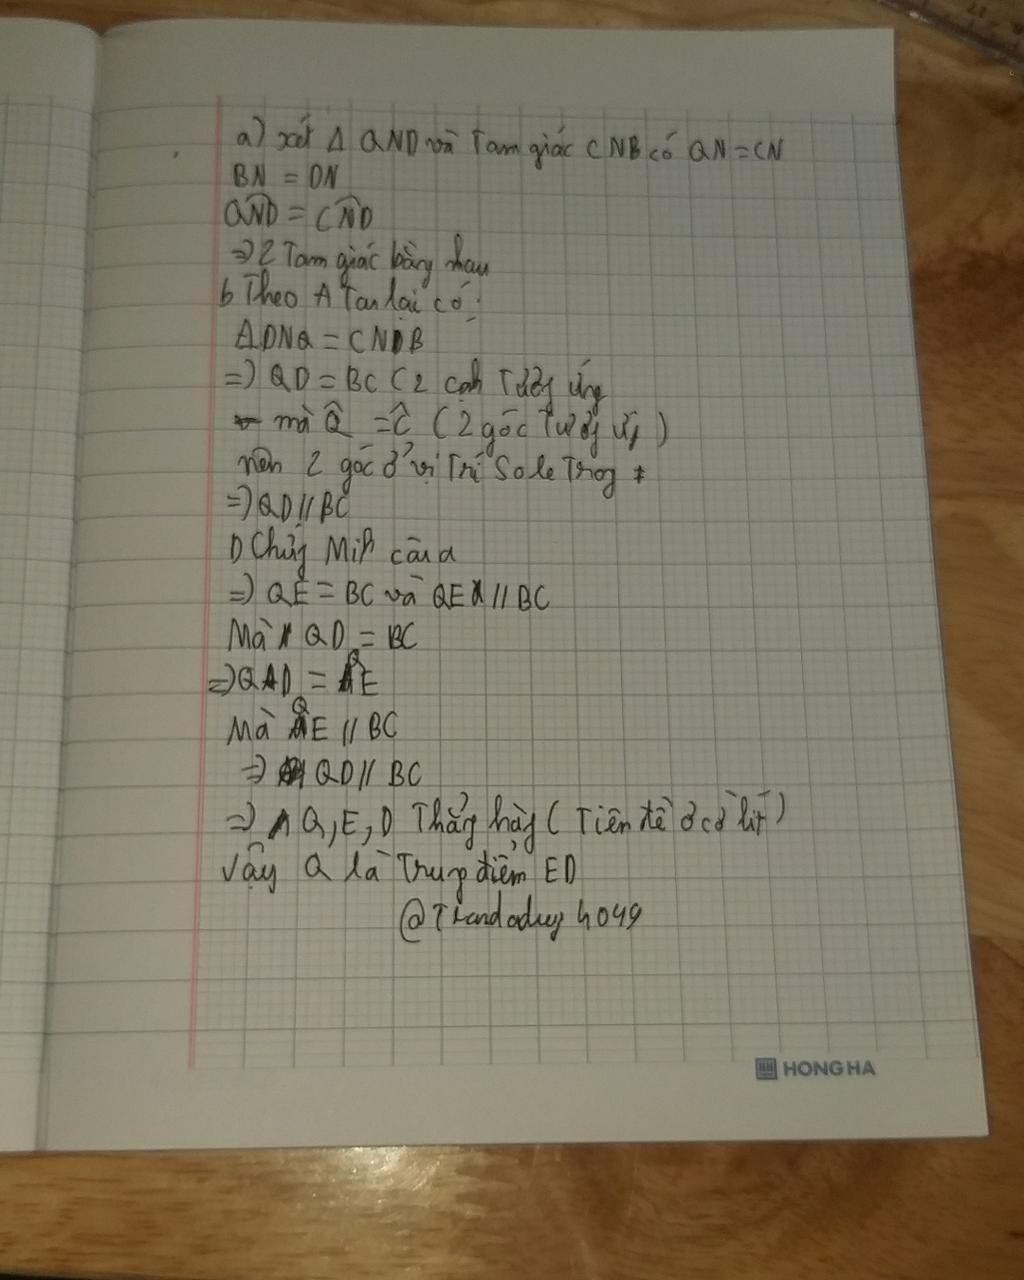 a) xét Δ QND và Tam giác CNB có QN = CN
BN = DN
QND = CND
=> 2 Tam giác bằng nhau
b Theo A Ta lại có:
ΔDNQ = CNB
=> QD = BC (2 cạnh Tương ứng
mà Q̂ = Ĉ (2 góc Tương ứng)
nên 2 góc ở vị Trí Sole Trong
=> QD // BC
D Chứng Minh câu a
=> QE = BC và QE // BC
Mà QD = BC
=> QD = QE
Mà QE // BC
=> QD // BC
=> Q, E, D Thẳng hàng ( Tiên đề ơ cờ lít)
Vậy Q là Trung điểm ED
4049
HONG HA